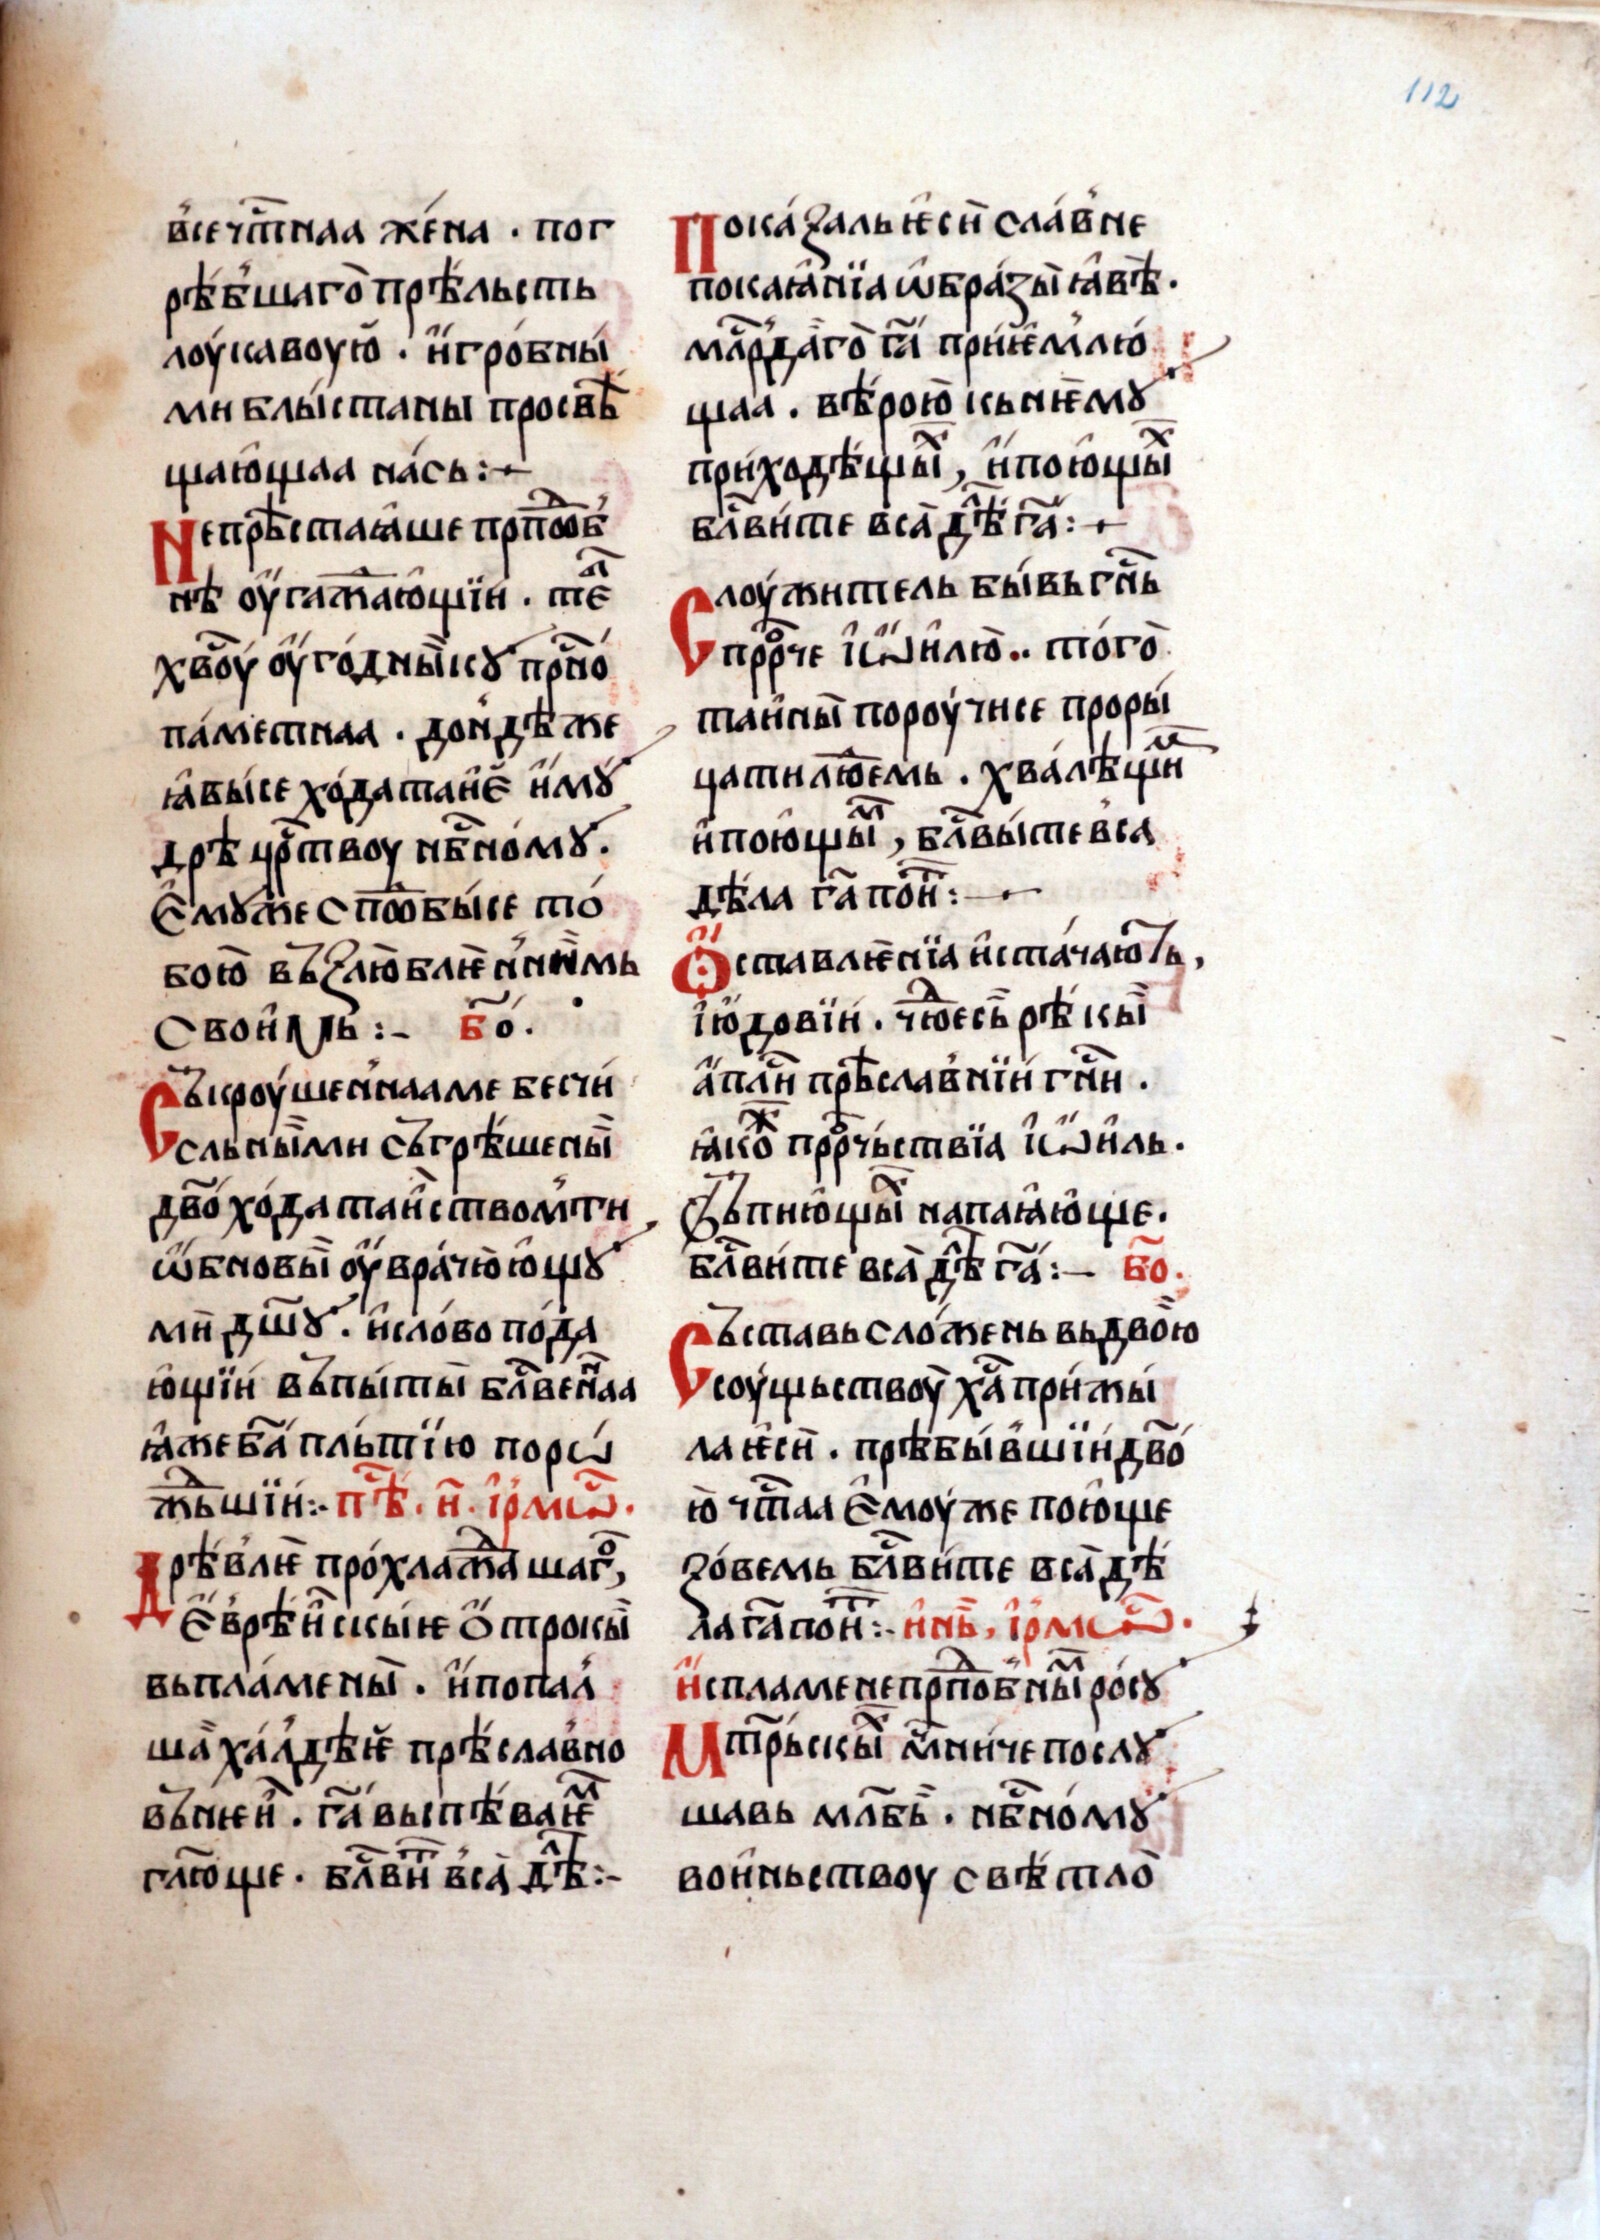 112
в҆сеч҇тнаа же́на . пог
рѣ́б҆шаго̀ прѣ́льсть
лоу́кавоую̀ . и҆гро́бны́
ми блы́станы просвѣ́
щаю̑щаа на́сь :~
Непрѣ́стаꙗ҆ше прпⷣо́б
нѣ оу҆гаⷤта҆ю҆щїи . тѣⷧ҇
хво҃у́ оу҆го́дны̀кꙋ при҇но́
па́метнаа . дон́дѣже
ꙗ҆вы́се хо́датаи҆є҆ и҆мꙋ́
дрѣ цр҇твоу нб҇но́мꙋ .
Е҆мꙋже споⷣбы́се то́
бою̀ въꙁлю̀блѥн҆ныи҆мь
свои҆мь :- бо҃ .
Съкроу́шен҆нааме бесчи́
сльны̀ми съгрѣ́шены̀
дво҃ хо́датаи҆ством҆ти
ѡ҆бновы̀ оу҆вра́чю̀ю҆щꙋ
мѝ дш҃ꙋ . и҆сло́во по́да
ю҆щїи́ въпы́ты̀ блв҃ен҆наа
ꙗ҆же ба҃ пльтїю порѡ́
жⷣьшїи :- пѣ҇ . и҃ . і҆рмѡ҇ .
Дрѣ́влѥ про́хлажⷣашаго ,
Е҆врѣ́и҆скыѥ ѻ҆трокы̀
вьпла́мены̀ . и҆попал҆
ша̀ хал҆дѣѥ҆ прѣ́слав҆но
въ́нѥи҆ . га҃ выпѣ́ваѥⷨ
глю҃ще . блв҃иⷮ в҆са̀ дѣⷧ҇ :-
Пока́ꙁаль ѥ҆сѝ сла́в҆не
покаꙗ҆нїа ѡ҆бра́ꙁы̀ ꙗ҆вѣ̀ .
млр҇даго̀ га҃ при́ѥ҆м҆лю́
щаа . вѣ́рою̀ кьнѥ̀мꙋ
прихо́дѣщы̀ⷯ , и҆поющы̀ⷯ
блв҃и́те вса̀ дѣⷧ҇ га҃ :~
Слоу́житель бы́вь гн҃ь
прⷪ҇рче і҆ѡ҆и́лю̀ .. то́го̀
таи҆ны̀ пороу́чисе проры́
цатилю҃емь . хва́лѣщиⷨ
и҆поющы̀ⷨ , блв҃ы́те вса
дѣ́ла га҃ поиⷮ :—
Ѻ҆ставлѥ́нїа и҆ста́чаю҆ть ,
і҆ю҆довїи́ . чюⷣесѣ̀ рѣ́кы̀
а҆пл҇и прѣ́слав҆нїи́ гн҃и .
ꙗ҆коⷤ прⷪ҇рчь́ствїа і҆ѡ҆и҆ль .
въпию҆щы̀ⷯ напаꙗ҆ю҆ще .
блв҃и́те вса̀ дѣⷧ҇ га҃ :— бо҃ .
Съставь сло́жень вьдво̀ю
соу́щьствоу̀ ха҃ при́жы́
ла ѥ҆сѝ . прѣ́бы́в҆шїи́ дво҃
ю̀ чт҇аа Е҆моу́же пою̑ще
ꙁо́вемь блв҃и́те вса̀ дѣ́
ла га҃ поиⷮ :- и҆нь̀ , і҆рмѡ҇ .
И҆спламене прпⷣоб҆ны̀ⷨ ро́сꙋ
Мтр҃ьскы̀ⷯ мл҇ни́че послꙋ́
шавь млб҃ь . нб҇но́мꙋ
вои́ньствоу свѣ́тло̀